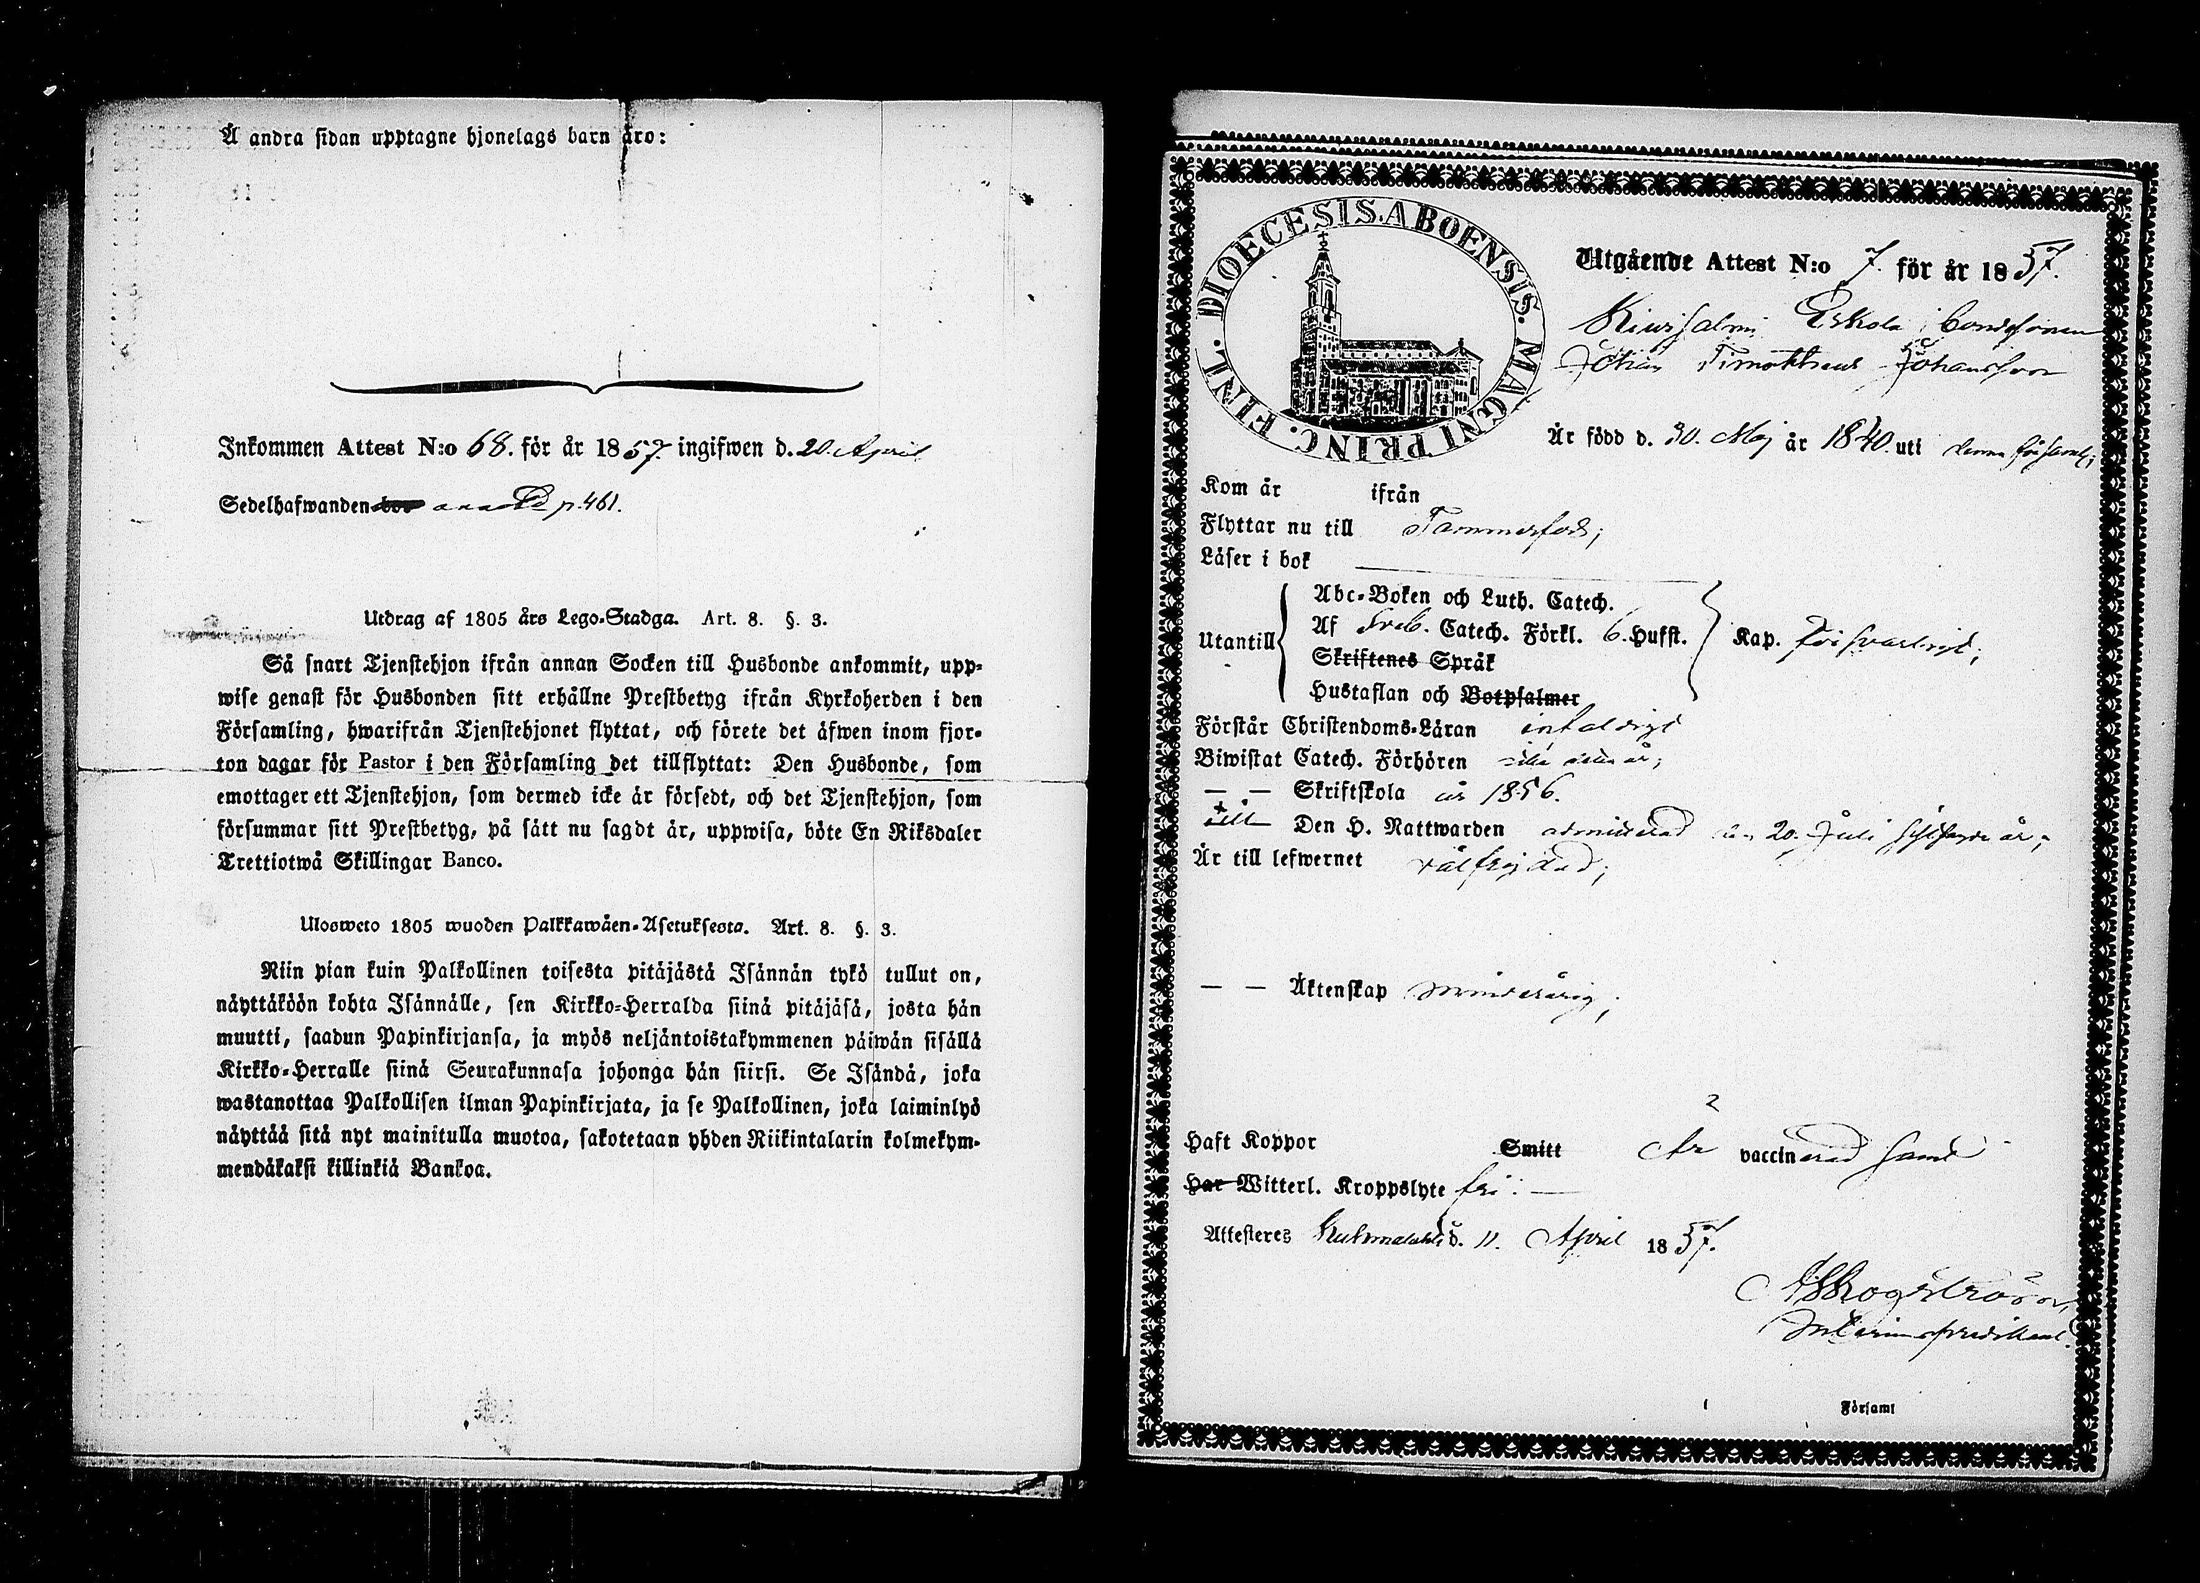 Å andra sidan upptagne hjonelags barn äro:
Inkommen Attest N:o 68. för år 1857 ingifwen d. 20. April
Sedelhafwanden p. 461.
Utdrag af 1805 års Lego-Stadga. Art. 8. §. 3.
Så snart Tjenstehjon ifrån annan Socken till Husbonde ankommit, upp-
wise genast för Husbonden sitt erhållne Prestbetyg ifrån Kyrkoherden i den
Församling, hwarifrån Tjenstehjonet flyttat, och förete det äfwen inom fjor-
ton dagar för Pastor i den Församling det tillflyttat: Den Husbonde, som
emottager ett Tjenstehjon, som dermed icke är försedt, och det Tjenstehjon, som
försummar sitt Prestbetyg, på sätt nu sagdt är, uppwisa, böte En Riksdaler
Trettiotwå Skillingar Banco.
Ulosweto 1805 wuoden Palkkawäen-Asetuksesta. Art. 8. §. 3.
Niin pian kuin Palkollinen toisesta pitäjästä Isännän tykö tullut on,
näyttäköön kohta Isännälle, sen Kirkko-Herralda siinä pitäjäsä, josta hän
muutti, saadun Papinkirjansa, ja myös neljäntoistakymmenen päiwän sisällä
Kirkko-Herralle siinä Seurakunnasa johonga hän siirsi. Se Isändä, joka
wastanottaa Palkollisen ilman Papinkirjata, ja se Palkollinen, joka laiminlyö
näyttää sitä nyt mainitulla muotoa, sakotetaan yhden Riikintalarin kolmekym-
mendäkaksi killinkiä Bankoa.
DIOECESIS. ABOENSIS. MAGNI PRINC. FINL.
Utgående Attest N:o 7. för år 1857.
Kiwisalmi Eskola bondsonen
Johan Timotheus Johansson
Är född d. 30. Maj år 1840. uti denna församl;
Kom år ifrån
Flyttar nu till Tammerfors;
Läser i bok
Abc-Boken och Luth. Catech.
Utantill Af Sveb. Catech. Förkl. 6. Hufst. Kap. försvarligt;
Skriftenes Språk
Hustaflan och Botpsalmer
Förstår Christendoms-Läran enfaldigt
Biwistat Catech. Förhören
— — Skriftskola år 1856.
till Den H. Nattwarden admitterad den 20. Juli sistledne år;
Är till lefwernet välfrejdad;
— — Äktenskap minderårig;
Haft Koppor Smitt Är vaccinerad samt
Har Witterl. Kroppslyte fri. —
Attesteres Kuhmalahti d. 11. April 1857.
A Skogström,
Interimspredikant.
Församl